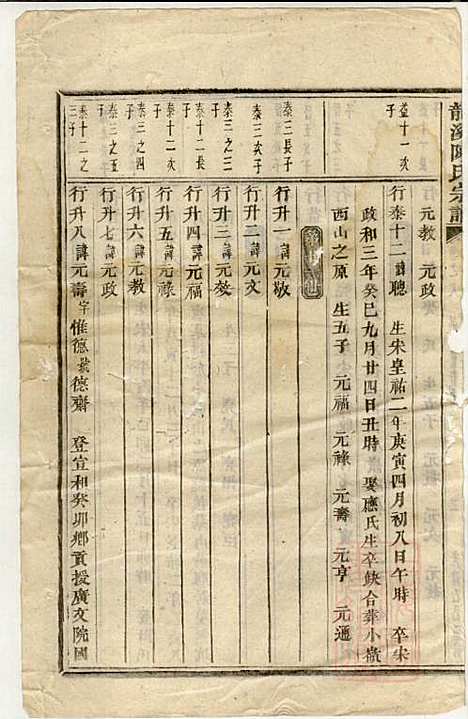 龍溪陳氏宗譜
元教　元政
益十一次子
行泰十二諱聰　生宋皇祐二年庚寅四月初八日午時　卒宋
政和三年癸巳九月廿四日丑時　娶應氏生卒缺合葬小嶺
西山之原　生五子　元福　元祿　元壽　元亨　元通
泰三長子
行升一諱元敬
泰三次子
行升二諱元文
泰三之三子
行升三諱元發
泰十二長子
行升四諱元福
泰十二次子
行升五諱元祿
泰三之四子
行升六諱元教
泰三之五子
行升七諱元政
泰十二之三子
行升八諱元壽字惟德號德齋　登宣和癸卯鄉貢授廣文院國